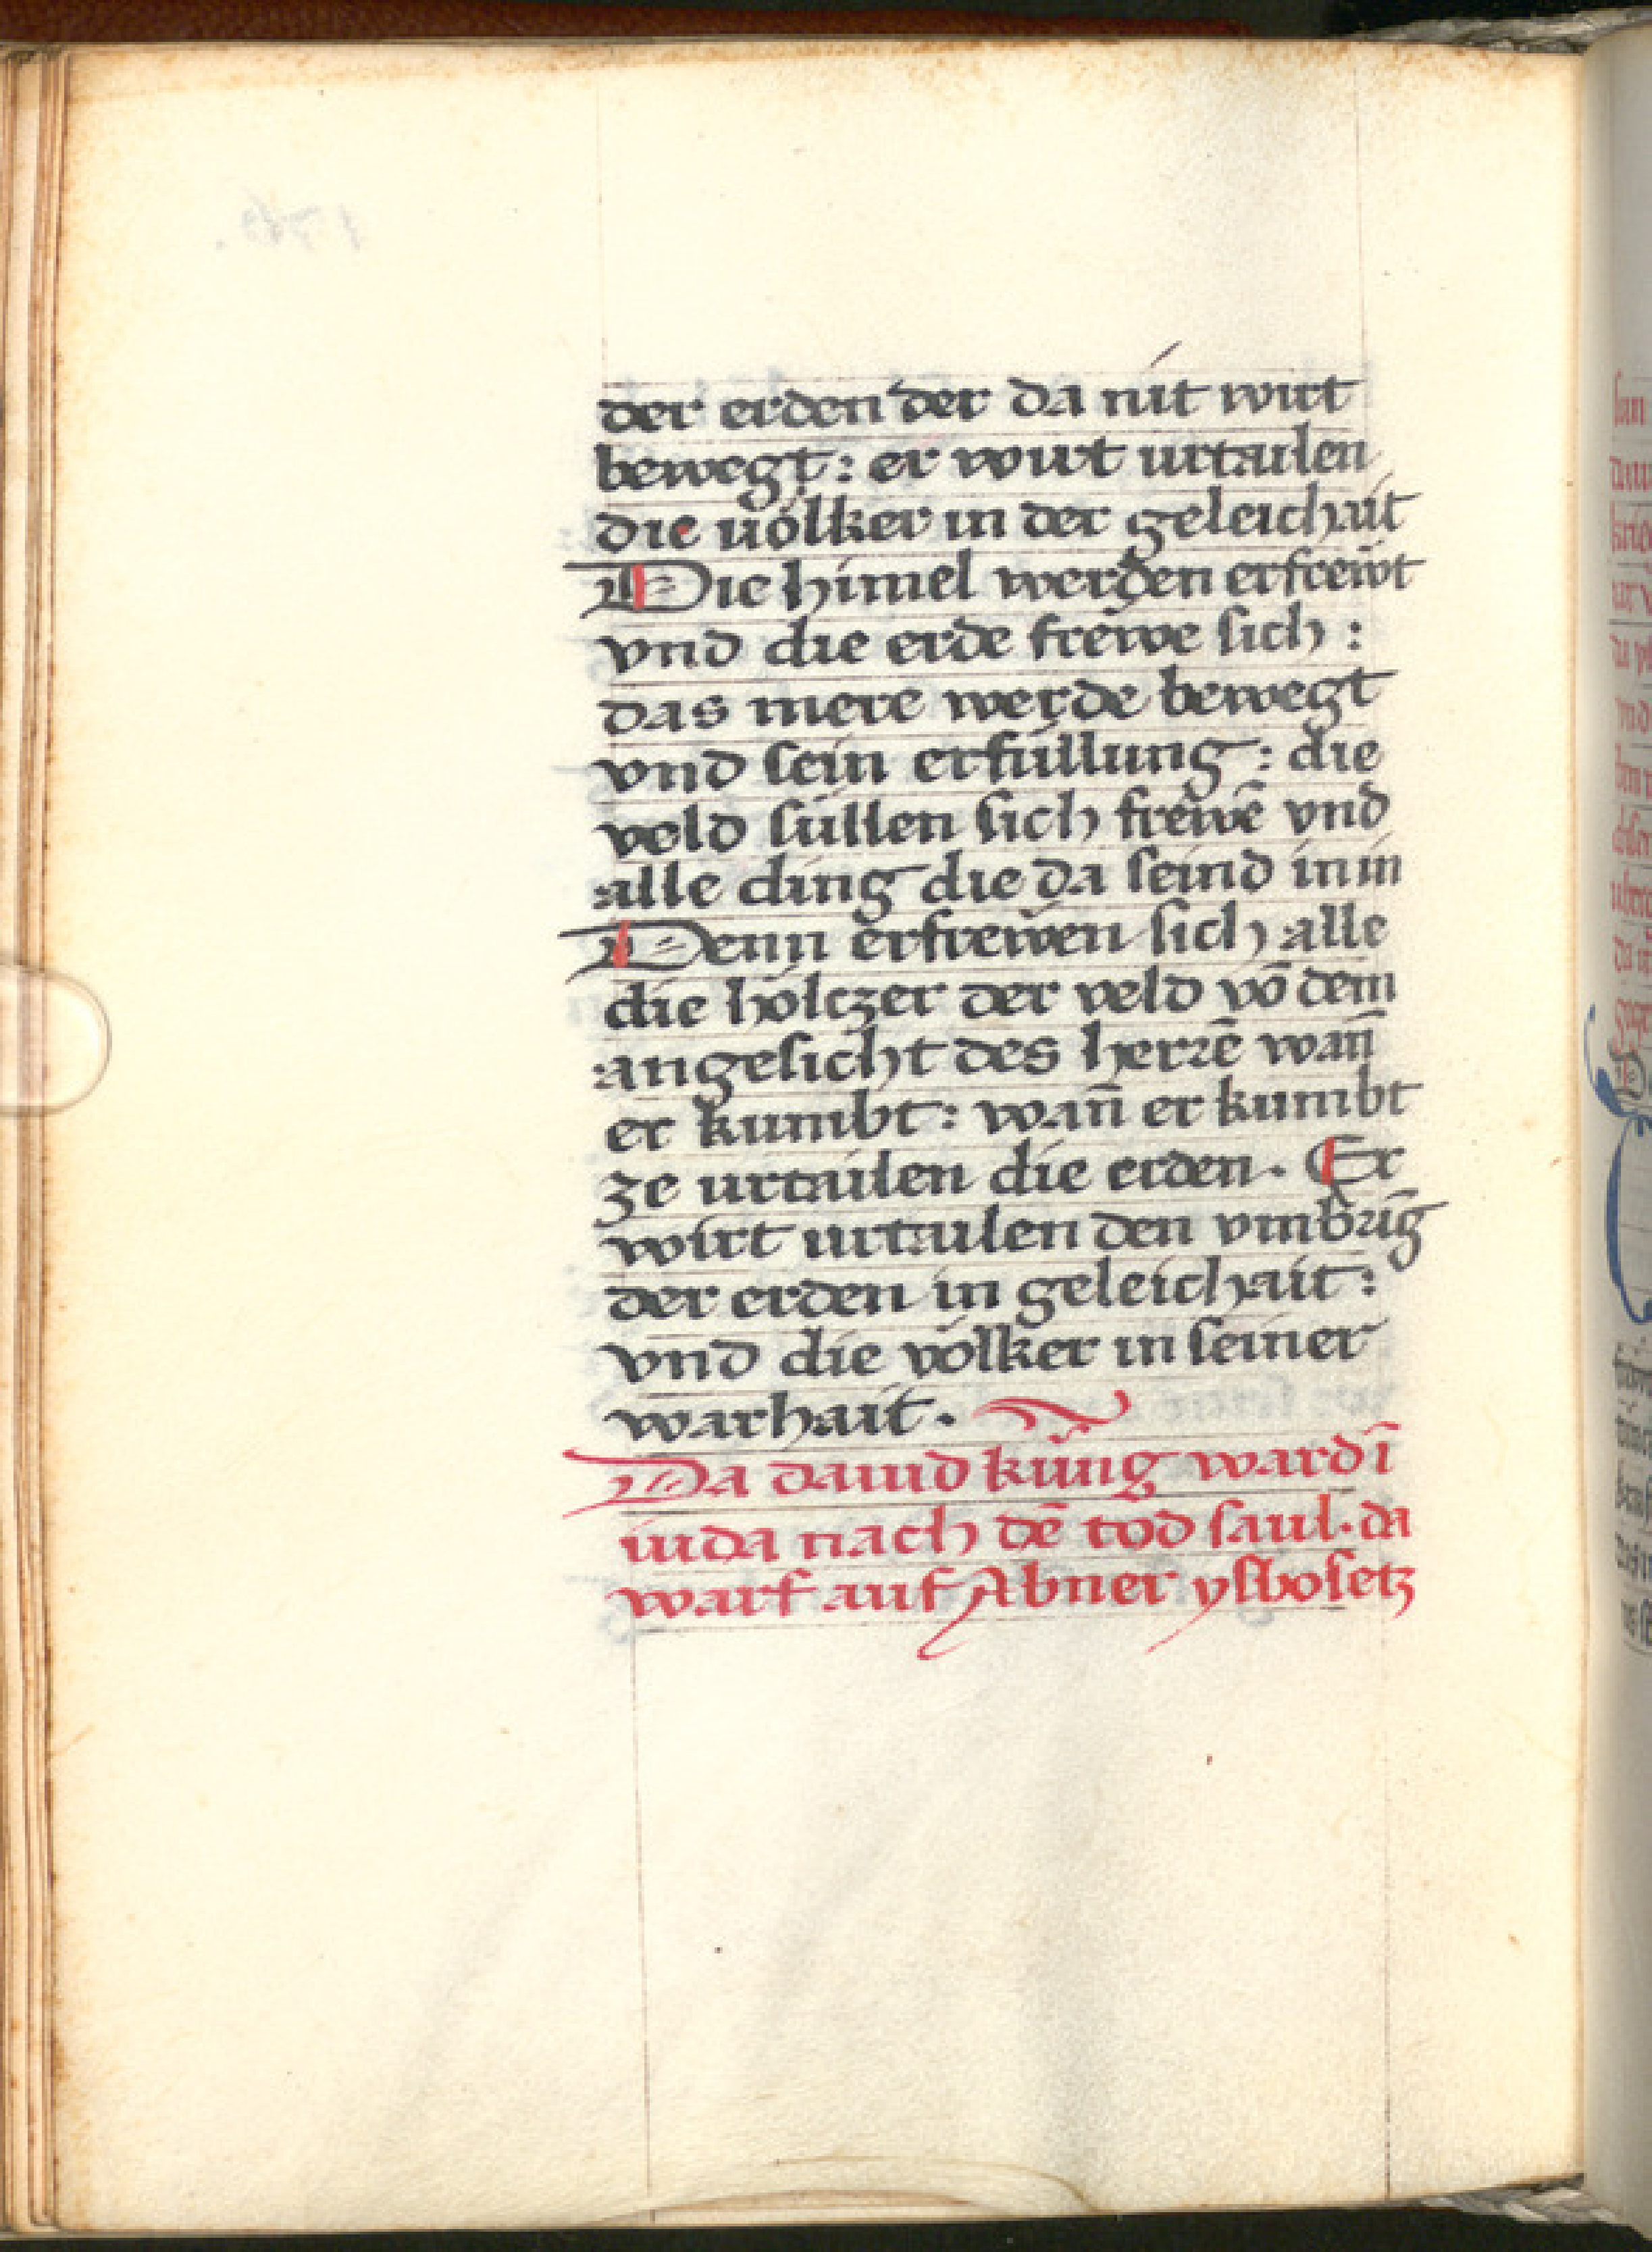 der erden der da nit wirt
bewegt: er wirt urtailen
die uölker in der geleichait
Die himel werden erfrewt
vnd die erde frewe sich :
das mere werde bewegt
vnd sein erfüllung: die
veld süllen sich frewē vnd
alle ding die da seind in in
Denn erfrewen sich alle
die hölczer der veld vō dem
angesicht des herrē wañ
er kumbt: wañ er kumbt
ze urtailen die erden. Er
wirt urtailen den vmbrīg
der erden in geleichait:
vnd die völker in seiner
warhait.
Da dauid küng ward ī
iuda nach dē tod saul. da
warf auf Abner ysbosetz